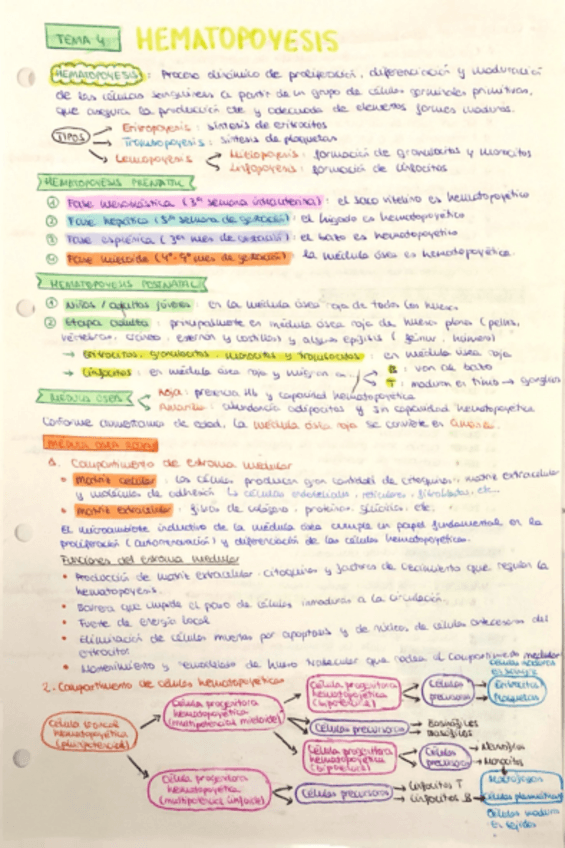 TEMA 4 HEMATOPOYESIS
HEMATOPOYESIS : Proceso dinámico de proliferación, diferenciación y maduración
de las células sanguíneas a partir de un grupo de células germinales primitivas,
que asegura la producción cte y adecuada de elementos formes maduros.
TIPOS
Eritropoyesis : síntesis de eritrocitos
Trombopoyesis : síntesis de plaquetas
Leucopoyesis
Mielopoyesis : formación de granulocitos y monocitos
Linfopoyesis : formación de linfocitos
HEMATOPOYESIS PRENATAL
① Fase mesoblástica (3ª semana intrauterina) : el saco vitelino es hematopoyético
② Fase hepática ( semana de gestación) : el hígado es hematopoyético
③ Fase esplénica (3er mes de gestación) : el bazo es hematopoyético
④ Fase mieloide (4º-5º mes de gestación) : la médula ósea es hematopoyética.
HEMATOPOYESIS POSTNATAL
① Niños / adultos jóvenes : en la médula ósea roja de todos los huesos
② Etapa adulta : principalmente en médula ósea roja de huesos planos (pelvis,
vértebras, cráneo, esternón y costillas) y algunas epífisis (fémur, húmero)
→ Eritrocitos, granulocitos, monocitos y trombocitos : en médula ósea roja
→ Linfocitos : en médula ósea roja y migran a...
B : van al bazo
T : maduran en timo → ganglios
MÉDULA ÓSEA
Roja : presencia Hb y capacidad hematopoyética
Amarilla : abundancia adipocitos y sin capacidad hematopoyética
Conforme aumentamos de edad, la médula ósea roja se convierte en amarilla.
MÉDULA ÓSEA ROJA
1. Compartimento de estroma medular
• Matriz celular : las células producen gran cantidad de citoquinas, matriz extracelular
y moléculas de adhesión. células endoteliales, reticulares, fibroblastos, etc...
• Matriz extracelular : fibras de colágeno, proteínas, etc.
El microambiente inductivo de la médula ósea cumple un papel fundamental en la
proliferación (autorrenovación) y diferenciación de las células hematopoyéticas.
Funciones del estroma medular
• Producción de matriz extracelular, citoquinas y factores de crecimiento que regulan la
hematopoyesis.
• Barrera que impide el paso de células inmaduras a la circulación
• Fuente de energía local
• Eliminación de células muertas por apoptosis y de núcleos de células antecesoras del
eritrocito.
• Mantenimiento y remodelado de hueso trabecular que rodea al compartimento medular
2. Compartimento de células hematopoyéticas
Célula troncal
hematopoyética
(pluripotencial)
Célula progenitora
hematopoyética
(multipotencial mieloide)
Célula progenitora
hematopoyética
(bipotencial)
Células
precursoras
Células maduras
en sangre
Eritrocitos
Plaquetas
Células precursoras
Basófilos
Célula progenitora
hematopoyética
(bipotencial)
Células
precursoras
Neutrófilos
Monocitos
Macrófagos
Célula progenitora
hematopoyética
(multipotencial linfoide)
Células precursoras
Linfocitos T
Linfocitos B
Células plasmáticas
Células maduras
en tejidos